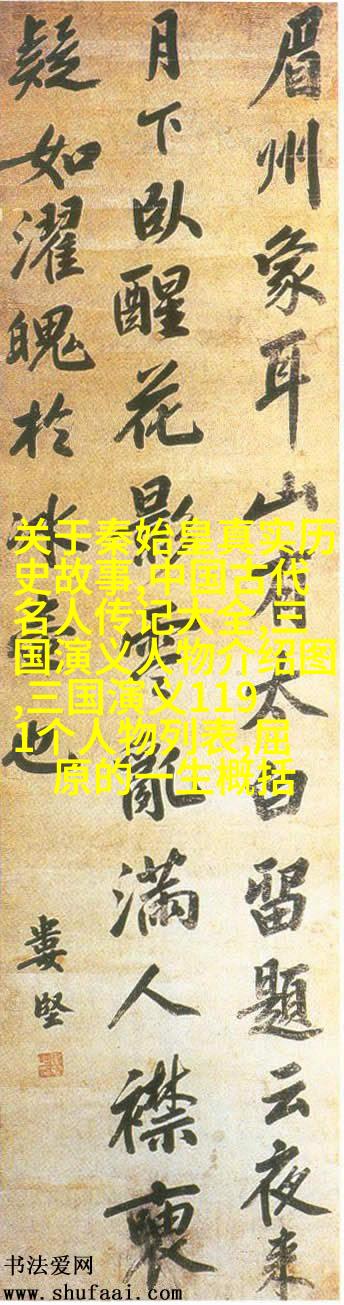 眉州象耳山太白留題云夜來
月下臥醒花影零亂滿人襟
疑如濯魄於冰壺也
婁堅
关于秦始皇真实历
史故事,中国古代
名人传记大全,三
国演义人物介绍图
,三国演义119
1个人物列表,屈
原的一生概括
书法爱网
www.shufaai.com